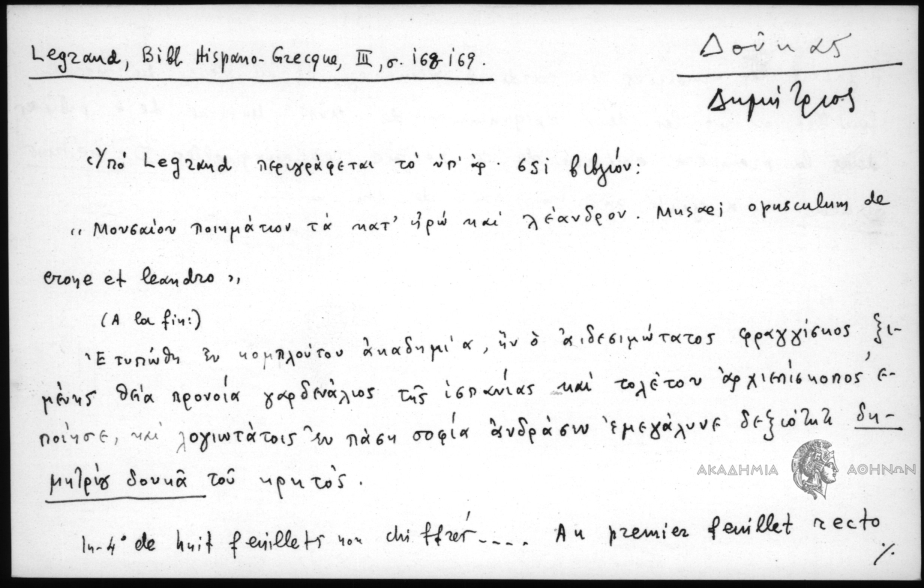 Legrand, Bibl. Hispano-Grecque, III, σ. 168-169.
Δούκας
Δημήτριος
Ὑπό Legrand περιγράφεται τό ὑπ' ἀρ. 651 βιβλίον:
"Μουσαίου ποιημάτιον τά κατ' ἡρώ καί λέανδρον. Musaei opusculum de
erone et leandro"
(A la fin:)
Ἐτυπώθη ἐν κομπλούτου ἀκαδημία, ἥν ὁ αἰδεσιμώτατος φραγγίσκος ξι-
μένης θεία προνοία γαρδενάλιος τῆς ἱσπανίας καί τολέτου ἀρχιεπίσκοπος ἐ-
ποίησε, καί λογιωτάτοις ἐν πάση σοφία ἀνδράσιν ἐμεγάλυνε δεξιότητι δη-
μητρίου δουκᾶ τοῦ κρητός.
ΑΚΑΔΗΜΙΑ ΑΘΗΝΩΝ
In-4° de huit feuillets non chiffrés.... Au premier feuillet recto
%